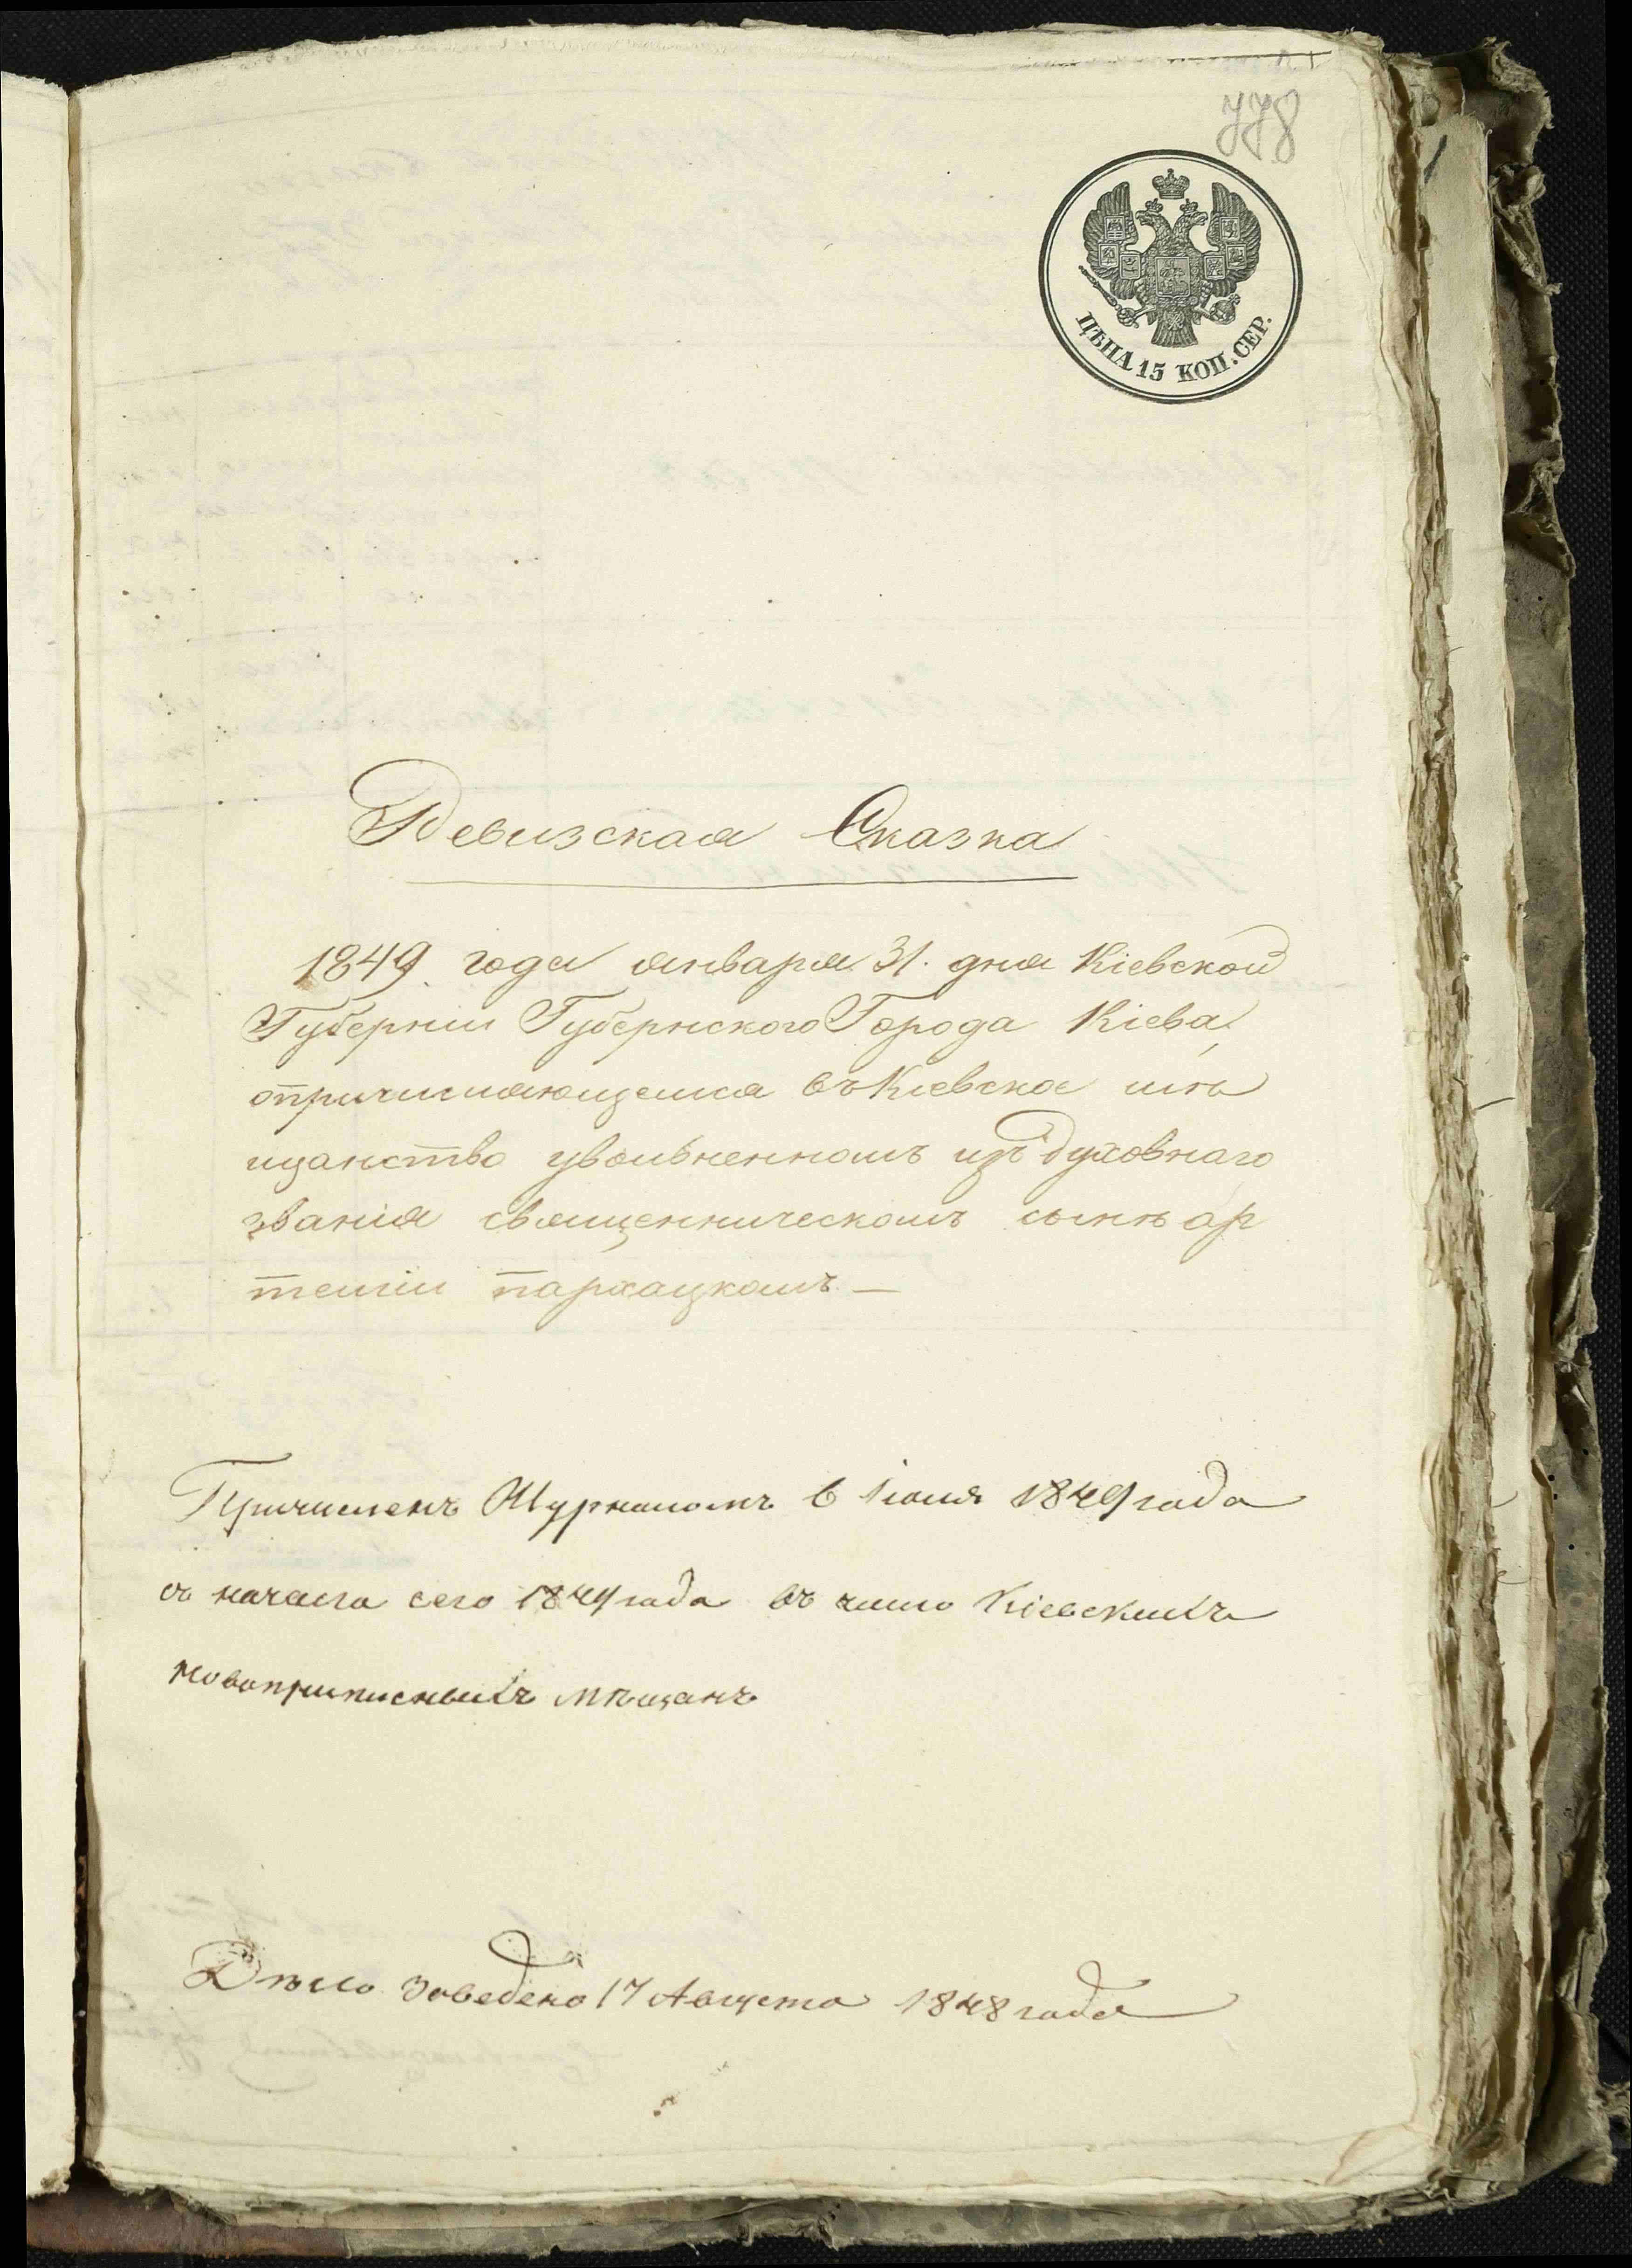 778
ЦѢНА 15 КОП. СЕР.
Ревизская Сказка
1849. года января 31. дня Кіевской
Губерніи Губернскаго Города Кіева,
опричисляющемся въ Кіевское мѣ
щанство увольненномъ изъ духовнаго
званія священническомъ сынѣ ар
теміи пархацкомъ —
Причисленъ Журналомъ 6 Іюля 1849 года
съ начала сего 1849 года въ число Кіевскихъ
новоприписныхъ мѣщанъ
Дѣло заведено 17 Августа 1848 года